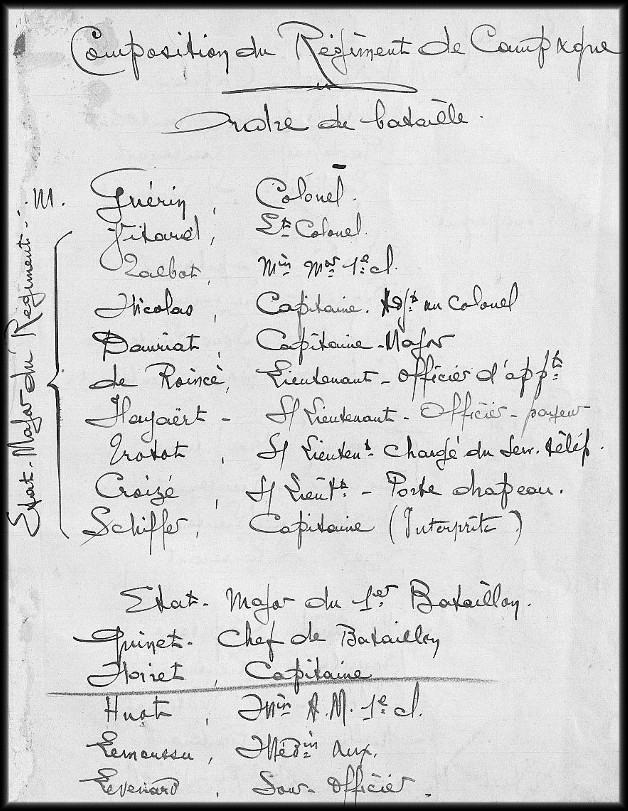 Composition du Régiment de Campagne
Ordre de bataille.
M. Guérin, Colonel.
Lt Colonel.
Talbot, Min Mor 1e cl.
Nicolas, Capitaine. Adjt au Colonel
Dauriat, Capitaine-Major
de Roincé, Lieutenant - Officier d'appt
Hayaërt - S/ Lieutenant - Officier - payeur
Trotot, S/ Lieutent chargé du Serv. téléf.
Croizé, S/ Lieutt - Porte drapeau.
Schiffer, Capitaine (Interprète)
Etat-Major du Régiment
Etat-Major du 1er Bataillon.
Guinet - Chef de Bataillon
Floiret, Capitaine
Huot, Min A.M. 1e cl.
Lemoussu, Médin Aux.
Levenard, Sous-Officier.